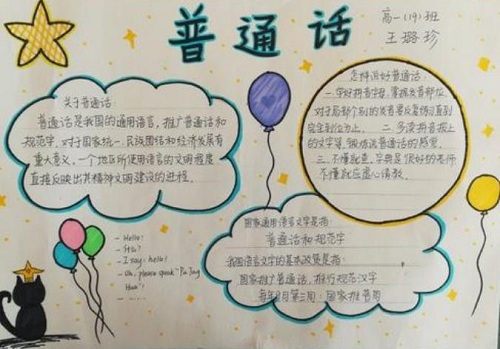 普通话
高一(19)班
王璐珍
关于普通话:
普通话是我国的通用语言,推广普通话和
规范字,对于国家统一、民族团结和经济发展有
重大意义。一个地区所使用语言的文明程度
直接反映出其精神文明建设的进程。
怎样说好普通话:
一、学好拼音字母,掌握发音部位,
对于局部个别的发音要反复练习直到
完全到位为止。 二、多读拼音报上
的文字等,锻炼说普通话的感觉。
三、不懂就查,字典是很好的老师
不懂就应虚心请教。
- Hello!
- I say: hello!
- Uh, please speak "Pu Tong
Hua"!
- ......
国家通用语言文字是指:
普通话和规范字
我国语言文字的基本政策是指:
国家推广普通话,推行规范汉字
每年9月第三周:国家推普周